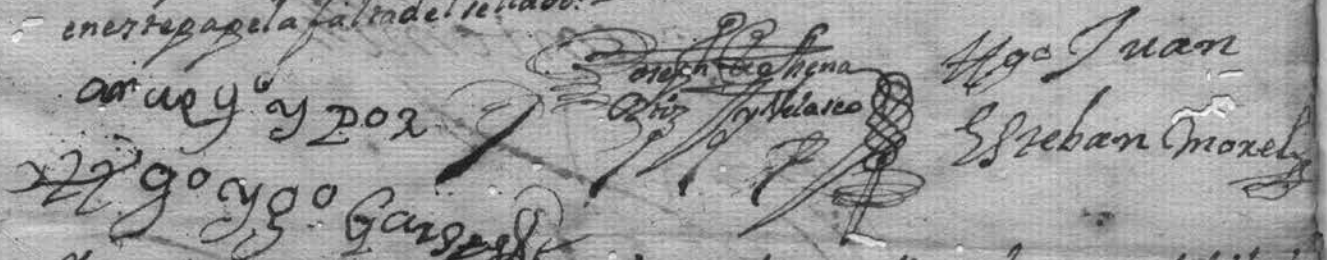 en este papel a falta del sellado.
a rruego y por
tt.go ygo Garzes
Joseph de Thena
Ortiz y Velasco
ttgo Juan
Esteban Morel